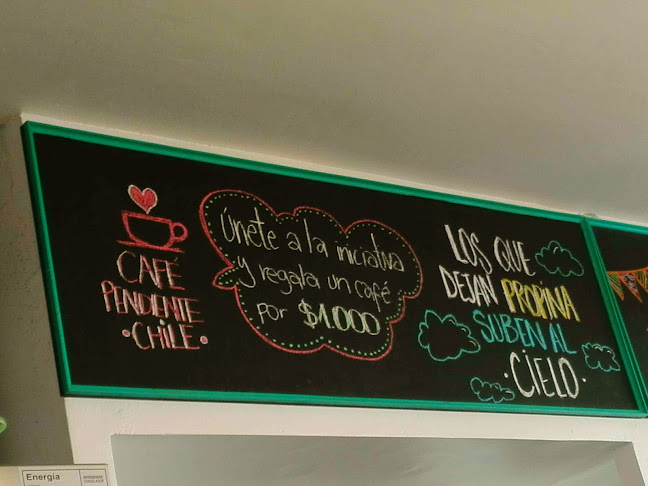 CAFÉ
PENDIENTE
·CHILE·
Únete a la iniciativa
y regala un café
por $1.000
LOS QUE
DEJAN PROPINA
SUBEN AL
·CIELO·
Energía